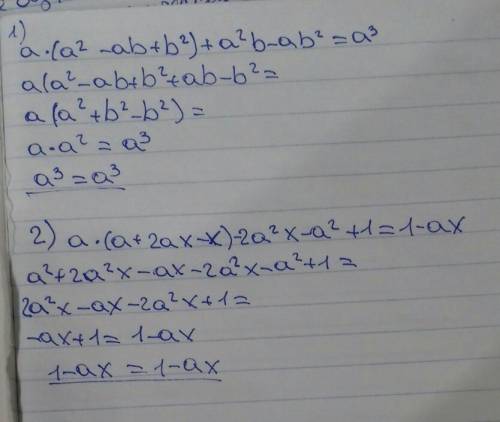 1)
a·(a² -ab+b²)+a²b-ab²=a³
a(a²-ab+b²+ab-b²=
a(a²+b²-b²)=
a·a²=a³
a³=a³
2) a·(a+2ax-x)-2a²x-a²+1=1-ax
a²+2a²x-ax-2a²x-a²+1=
2a²x-ax-2a²x+1=
-ax+1=1-ax
1-ax=1-ax